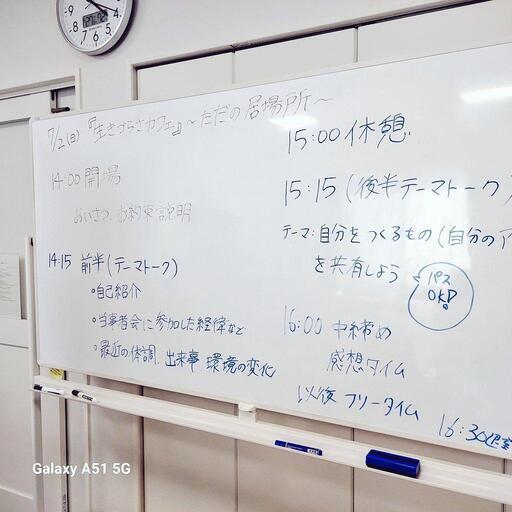 7/2(日)『生きづらさカフェ』～ただの居場所～
14:00 開場
あいさつ、お約束説明
14:15 前半(テーマトーク)
・自己紹介
・当事者会に参加した経緯など
・最近の体調、出来事、環境の変化
15:00 休憩
15:15 (後半テーマトーク)
テーマ:自分をつくるもの(自分のア
を共有しよう
パス
OK!
16:00 中締め
感想タイム
以後 フリータイム
16:30
Galaxy A51 5G